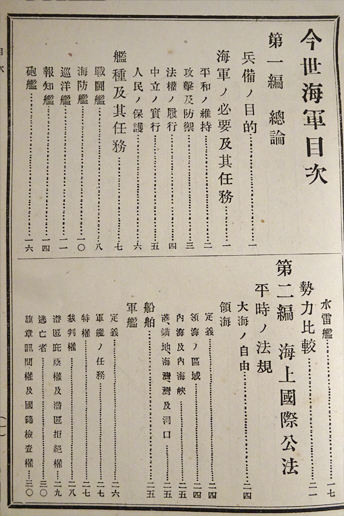 今世海軍目次
第一編　總論
兵備ノ目的……一
海軍ノ必要及其任務……一
平和ノ維持……二
攻擊及防禦……三
法權ノ履行……四
中立ノ實行……五
人民ノ保護……六
艦種及其任務……七
戰鬪艦……八
海防艦……一〇
巡洋艦……一一
報知艦……一四
砲艦……一六
水雷艦……一七
勢力比較……二一
第二編　海上國際公法
平時ノ法規
大海ノ自由……二四
領海
定義……二四
領海ノ區域……二四
內海及內海峽……二五
港灣地海灣灣及河口……二五
船舶……二五
軍艦
定義……二六
軍艦ノ任務……二七
特權……二七
裁判權……二八
潛匿庇蔭權及潛匿拒絕權……二九
逃亡者……三〇
旗章訊問權及國籍檢查權……三〇